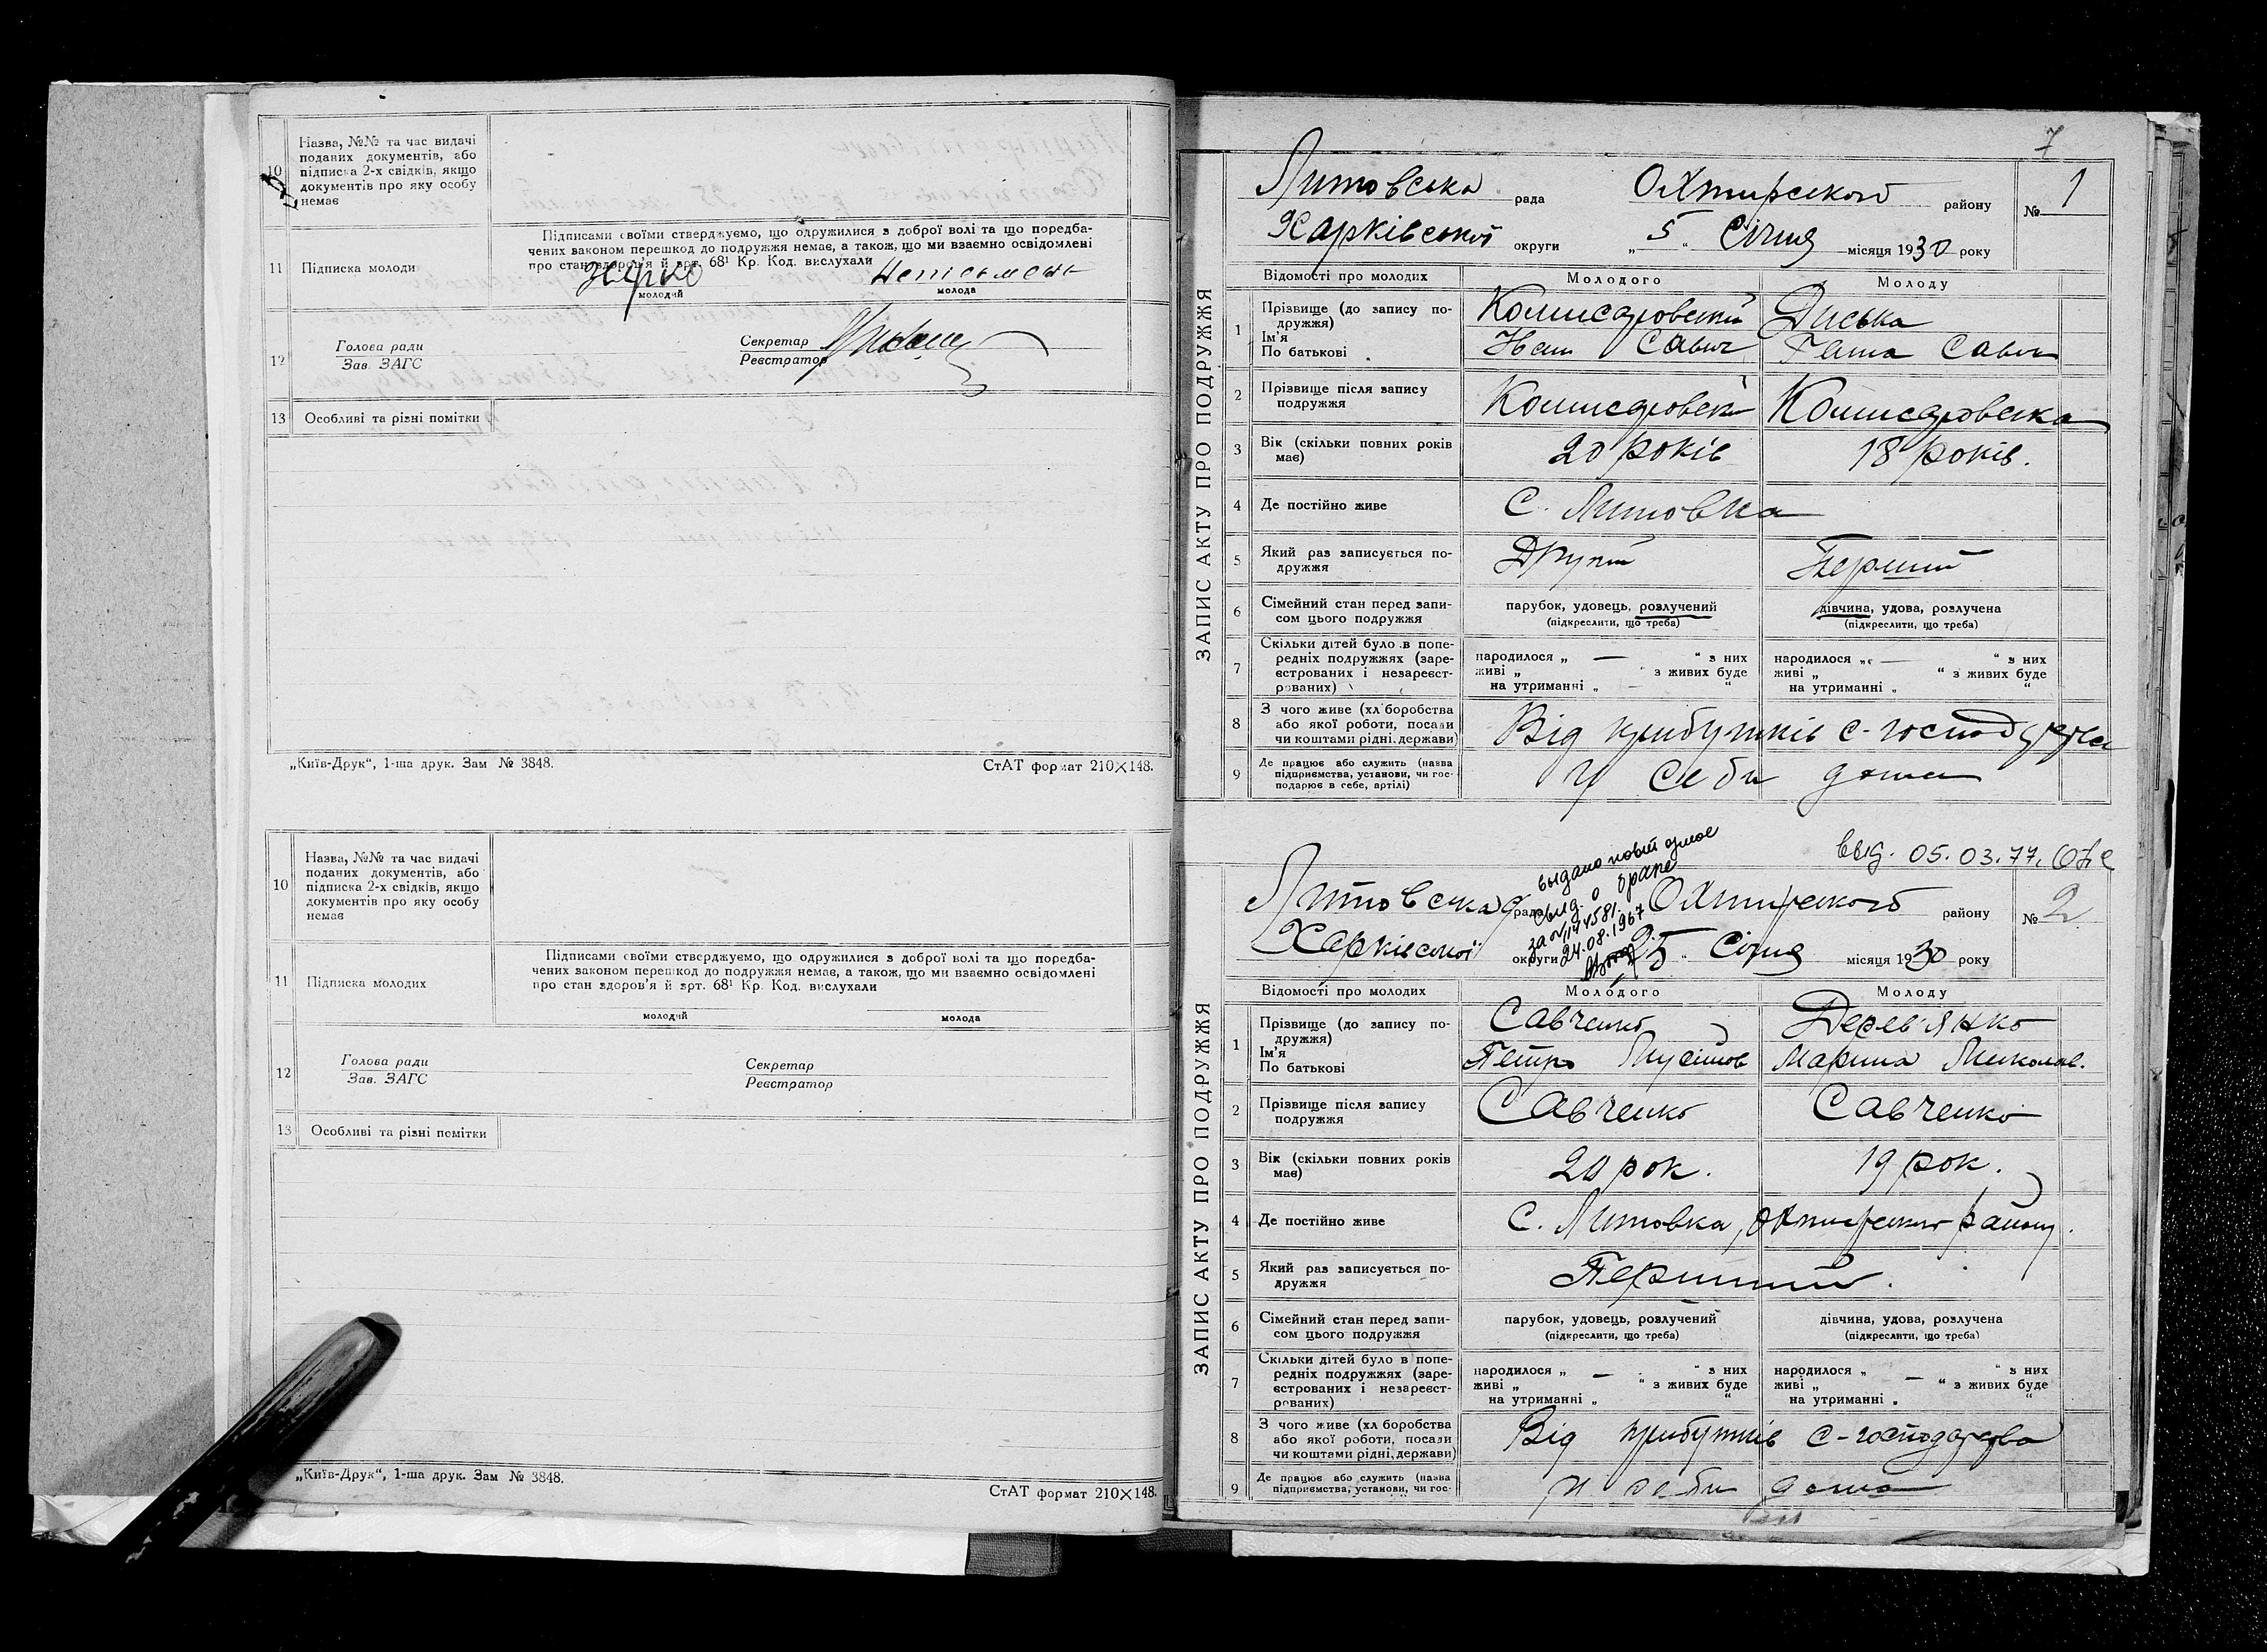 10
Назва, №№ та час видачі
поданих документів, або
підписка 2-х свідків, якщо
документів про яку особу
немає
11
Підписка молоди
Підписами своїми стверджуємо, що одружилися з доброї волі та що поредба-
чених законом перешкод до подружжя немає, а також, що ми взаємно освідомлені
про стан здоров'я й арт. 68¹ Кр. Код. вислухали
молодий
молода
12
Голова ради
Зав. ЗАГС
Секретар
Реєстратор
13
Особливі та різні помітки
„Київ-Друк“, 1-ша друк. Зам № 3848.
СтАТ формат 210×148.
10
Назва, №№ та час видачі
поданих документів, або
підписка 2-х свідків, якщо
документів про яку особу
немає
11
Підписка молодих
Підписами своїми стверджуємо, що одружилися з доброї волі та що поредба-
чених законом перешкод до подружжя немає, а також, що ми взаємно освідомлені
про стан здоров'я й арт. 68¹ Кр. Код. вислухали
молодий
молода
12
Голова ради
Зав. ЗАГС
Секретар
Реєстратор
13
Особливі та різні помітки
„Київ-Друк“, 1-ша друк. Зам № 3848.
СтАТ формат 210×148.
7
ЗАПИС АКТУ ПРО ПОДРУЖЖЯ
Литовська рада Охтирського району № 1
Харківської округи „5“ Січня місяця 1930 року
Відомості про молодих
Молодого
Молоду
1
Прізвище (до запису по-
дружжя)
Ім'я
По батькові
Комисаровский
Савич
Диська
Савич
2
Прізвище після запису
подружжя
Комисаровский
Комисаровська
3
Вік (скільки повних років
має)
20 років
18 років.
4
Де постійно живе
С. Литовка
5
Який раз записується по-
дружжя
Другий
Перший
6
Сімейний стан перед запи-
сом цього подружжя
парубок, удовець, розлучений
(підкреслити, що треба)
дівчина, удова, розлучена
(підкреслити, що треба)
7
Скільки дітей було в попе-
редніх подружжях (заре-
єстрованих і незареєст-
рованих)
народилося „ — “ з них
живі „ “ з живих буде
на утриманні „ — “
народилося „ — “ з них
живі „ “ з живих буде
на утриманні „ “
8
З чого живе (хл боробства
або якої роботи, посади
чи коштами рідні, держави)
Від прибутків с-господарства
9
Де працює або служить (назва
підприємства, установи, чи гос-
подарює в себе, артілі)
У себи дома
выд. 05.03.77.
выдано повт
свид. о браке
24.08.1967
ЗАПИС АКТУ ПРО ПОДРУЖЖЯ
Литовська рада Охтирського району № 2
Харківської округи 25 Січня місяця 1930 року
Відомості про молодих
Молодого
Молоду
1
Прізвище (до запису по-
дружжя)
Ім'я
По батькові
Савченко
Петро
Дерев'янко
Марина Миколаєв.
2
Прізвище після запису
подружжя
Савченко
Савченко
3
Вік (скільки повних років
має)
20 рок.
19 рок.
4
Де постійно живе
С. Литовка, Охтирського району.
5
Який раз записується по-
дружжя
Перший.
6
Сімейний стан перед запи-
сом цього подружжя
парубок, удовець, розлучений
(підкреслити, що треба)
дівчина, удова, розлучена
(підкреслити, що треба)
7
Скільки дітей було в попе-
редніх подружжях (заре-
єстрованих і незареєст-
рованих)
народилося „ — “ з них
живі „ “ з живих буде
на утриманні „ “
народилося „ “ з них
живі „ — “ з живих буде
на утриманні „ “
8
З чого живе (хл боробства
або якої роботи, посади
чи коштами рідні, держави)
Від прибутків с-господарства
9
Де працює або служить (назва
підприємства, установи, чи гос-
у себи дома